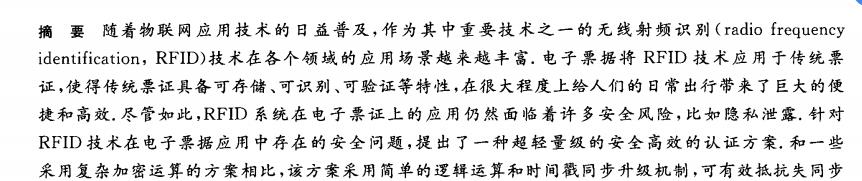 摘　要　随着物联网应用技术的日益普及,作为其中重要技术之一的无线射频识别(radio frequency
identification, RFID)技术在各个领域的应用场景越来越丰富.电子票据将 RFID 技术应用于传统票
证,使得传统票证具备可存储、可识别、可验证等特性,在很大程度上给人们的日常出行带来了巨大的便
捷和高效.尽管如此,RFID 系统在电子票证上的应用仍然面临着许多安全风险,比如隐私泄露.针对
RFID 技术在电子票据应用中存在的安全问题,提出了一种超轻量级的安全高效的认证方案.和一些
采用复杂加密运算的方案相比,该方案采用简单的逻辑运算和时间戳同步升级机制,可有效抵抗失同步